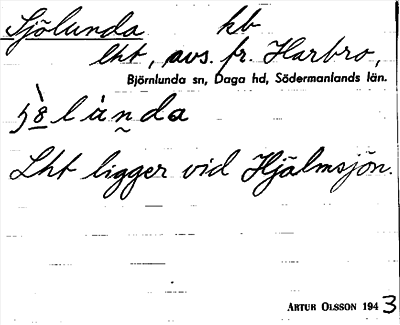 Sjölunda kb
lht, avs. fr. Harbro,
Björnlunda sn, Daga hd, Södermanlands län.
Lht ligger vid Hjälmsjön.
ARTUR OLSSON 1943